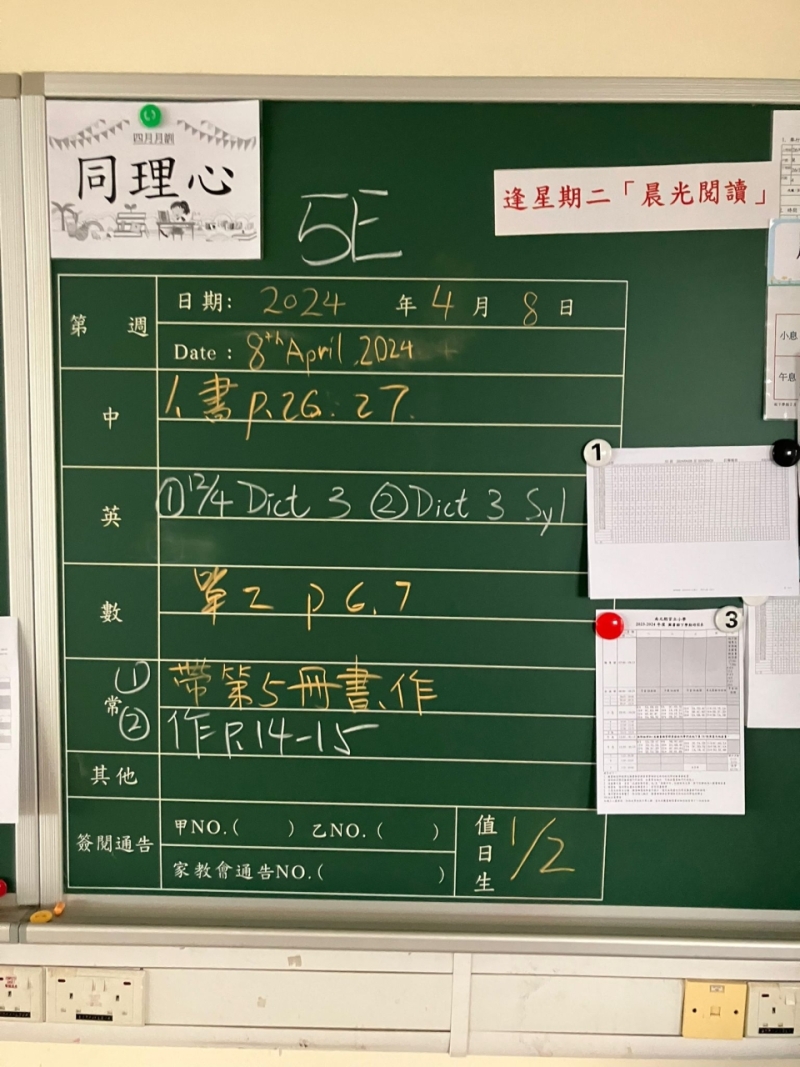 四月月訓
同理心
5E
逢星期二「晨光閱讀」
第 週
日期: 2024 年 4 月 8 日
Date : 8th April, 2024
中
1. 書 p. 26. 27.
英
① 12/4 Dict 3 ② Dict 3 Syl
數
單2 p 6. 7
常
① 帶第5冊書、作
② 作 P.14-15
其他
簽閱通告
甲NO.( ) 乙NO.( )
家教會通告NO.( )
值日生
1/2
小息
午息
1
3